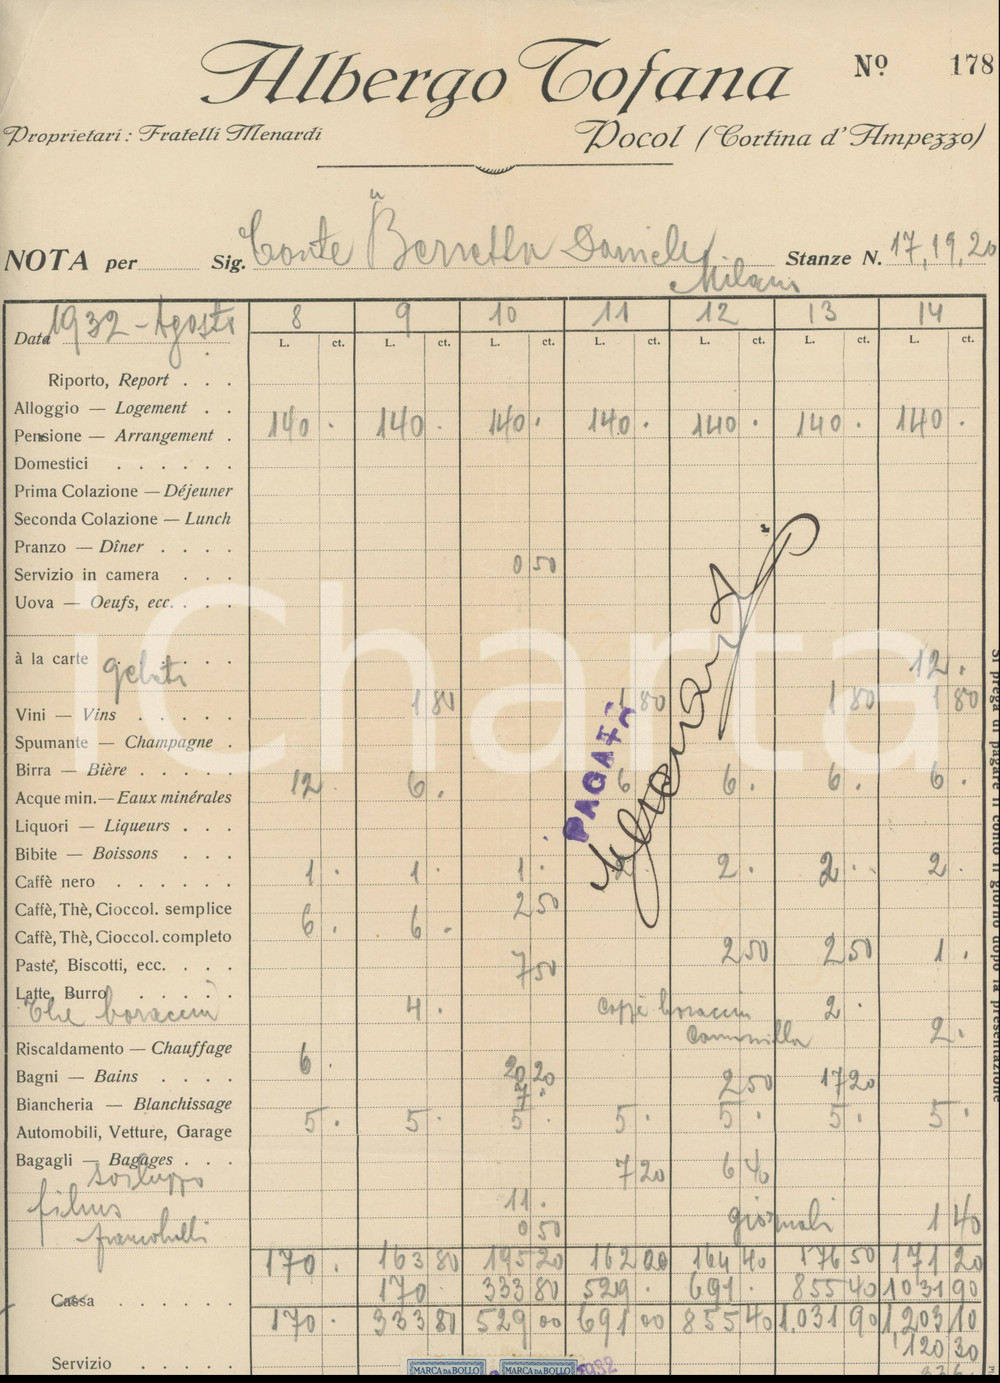 Albergo Tofana
Nº 178
Proprietari: Fratelli Menardi
Pocol (Cortina d'Ampezzo)
NOTA per Sig. Conte Berretta Daniele Stanze N. 17, 19, 20
Milano
Data 1932 - Agosto 8 9 10 11 12 13 14
L. ct. L. ct. L. ct. L. ct. L. ct. L. ct. L. ct.
Riporto, Report . . .
Alloggio — Logement . .
Pensione — Arrangement . 140 . 140 . 140 . 140 . 140 . 140 . 140 .
Domestici . . . . . .
Prima Colazione — Déjeuner
Seconda Colazione — Lunch
Pranzo — Dîner . . . .
Servizio in camera . . . 0 50
Uova — Oeufs, ecc. . . .
à la carte gelati . . . . 12 .
Vini — Vins . . . . . 1 80 1 80 1 80 1 80
Spumante — Champagne .
Birra — Bière . . . . .
Acque min. — Eaux minérales 12 6 . 6 6 . 6 . 6 .
Liquori — Liqueurs . . .
Bibite — Boissons . . .
Caffè nero . . . . . . 1 . 1 . 1 . 2 2 . 2 . 2 .
Caffè, Thè, Cioccol. semplice 2 50
Caffè, Thè, Cioccol. completo 6 . 6 .
Paste, Biscotti, ecc. . . . 7 50 2 50 2 50 1 .
Latte, Burro . . . . .
The 4 . Caffè 2 .
Camomilla 2 .
Riscaldamento — Chauffage 6 .
Bagni — Bains . . . . 20 20 2 50 17 20
Biancheria — Blanchissage 7 .
Automobili, Vetture, Garage 5 . 5 . 5 . 5 . 5 . 5 . 5 .
Bagagli — Bagages . . . 7 20 6 40
sviluppo
films 11 . giornali 1 40
francobolli 0 50
170 . 163 80 195 20 162 00 164 40 176 50 171 20
Cassa . . . . . . 170 333 80 529 . 691 . 855 40 1031 90
170 . 333 80 529 00 691 00 855 40 1,031 90 1,203 10
120 30
Servizio . . . . .
PAGATA
MARCA DA BOLLO MARCA DA BOLLO 1932
Si prega di pagare il conto il giorno dopo la presentazione
iCharta